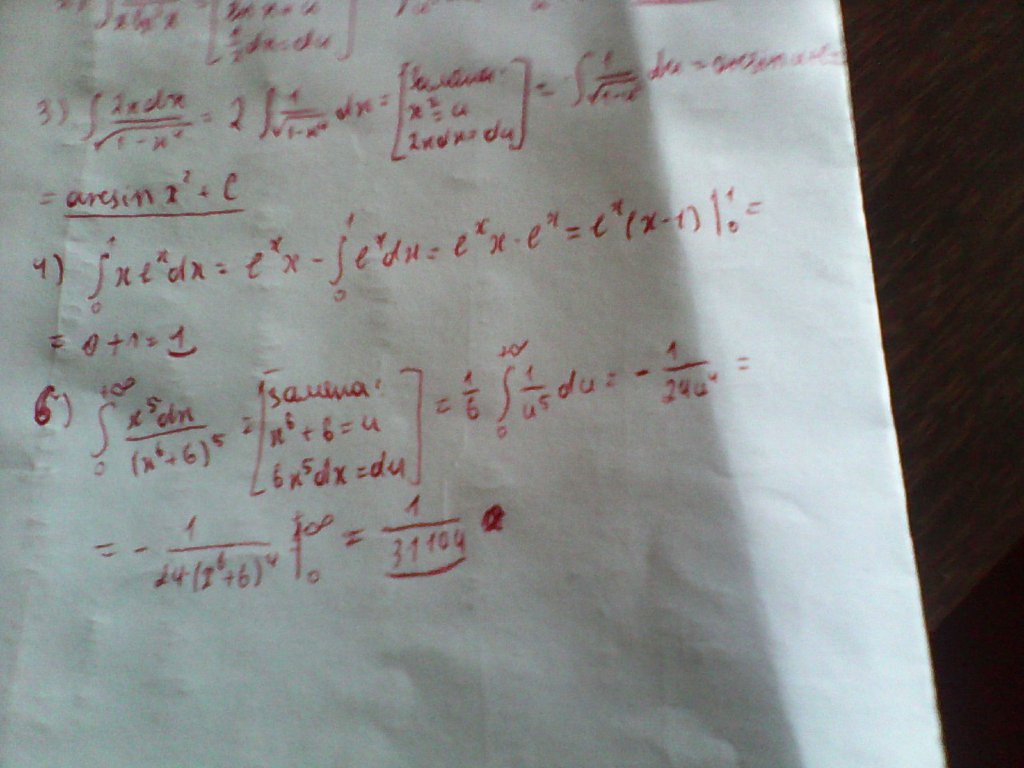 [ 1/x dx = du ]
3) ∫ 2x dx / √(1-x⁴) = 2 ∫ 1/√(1-x⁴) dx = [ Замена: x² = u 2x dx = du ] = ∫ 1/√(1-u²) du =
= arcsin x² + C
4) ∫₀¹ x eˣ dx = eˣ x - ∫₀¹ eˣ dx = eˣ x - eˣ = eˣ (x-1) |₀¹ =
= 0 + 1 = 1
6) ∫₀^{+∞} x⁵ dx / (x⁶+6)⁵ = [ Замена: x⁶ + 6 = u 6x⁵ dx = du ] = 1/6 ∫₀^{+∞} 1/u⁵ du = - 1/24u⁴ =
= - 1/24(x⁶+6)⁴ |₀^{+∞} = 1/31104